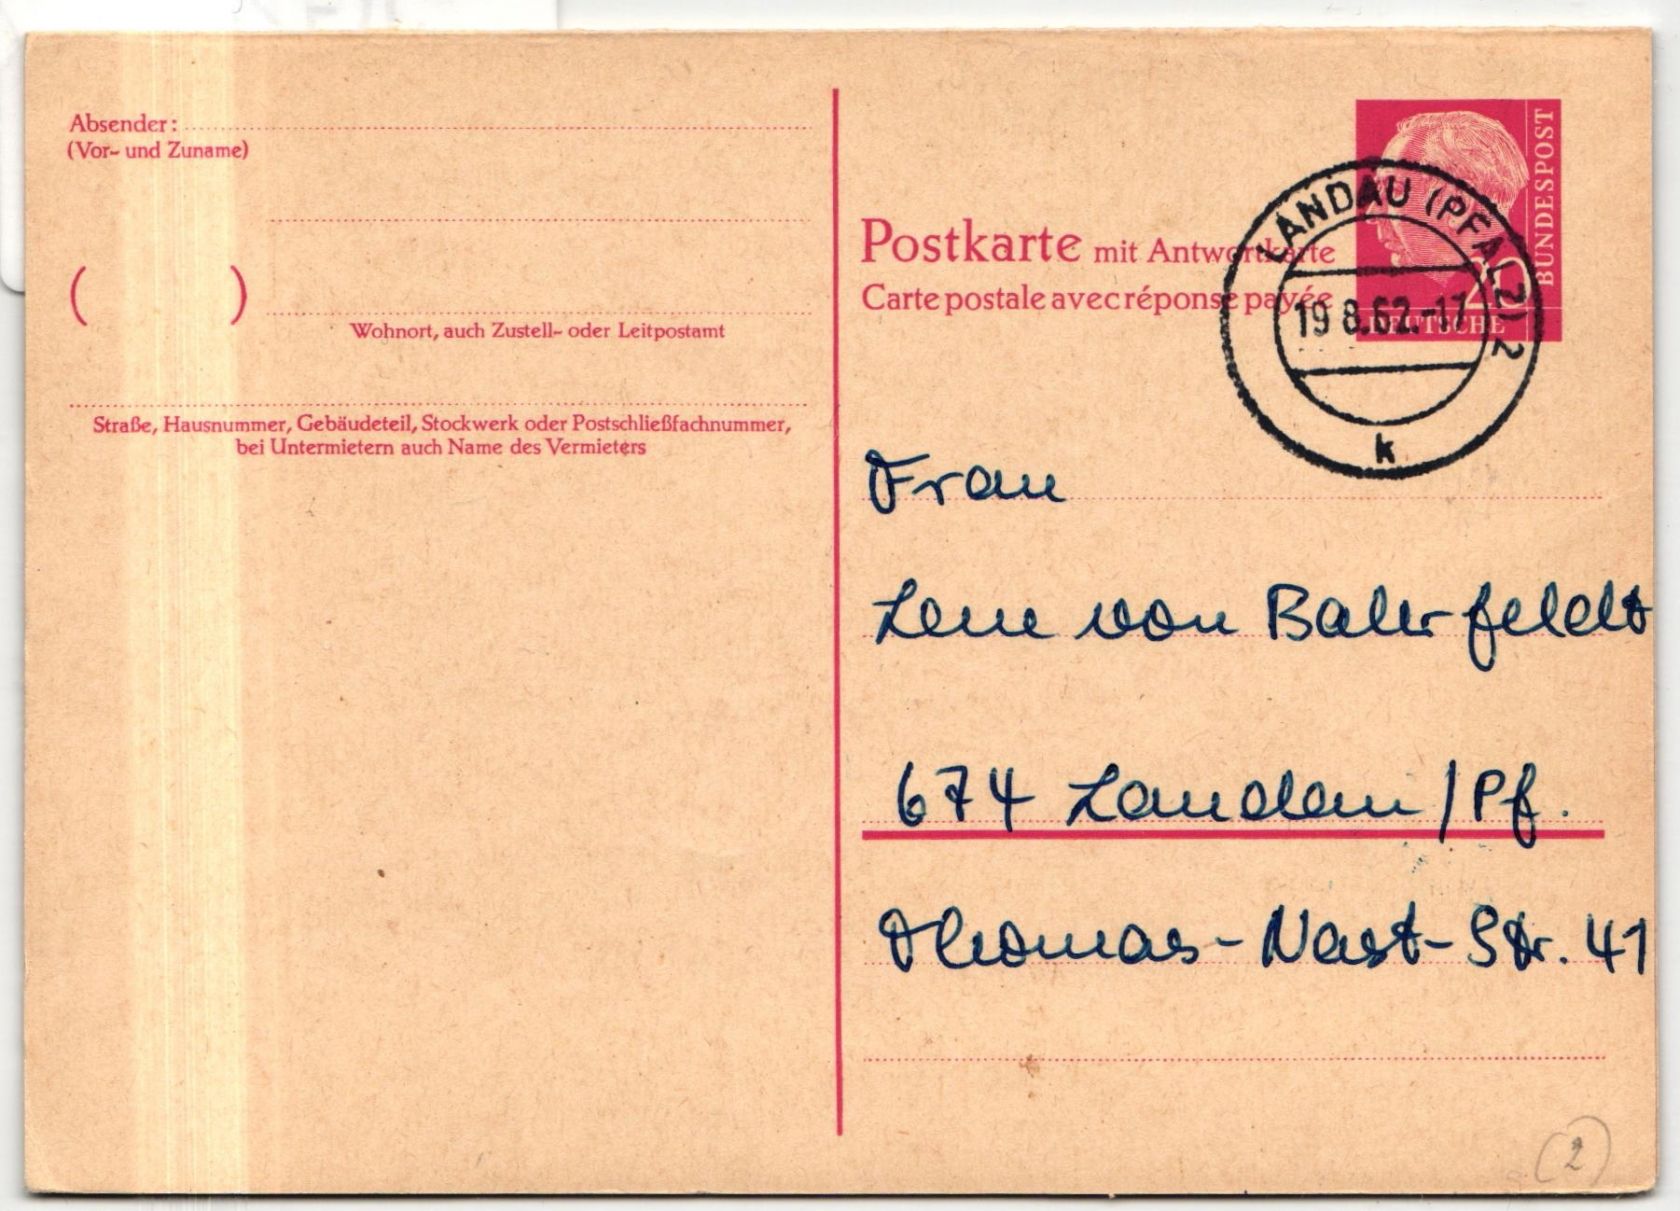 Absender:
(Vor- und Zuname)
( )
Wohnort, auch Zustell- oder Leitpostamt
Straße, Hausnummer, Gebäudeteil, Stockwerk oder Postschließfachnummer,
bei Untermietern auch Name des Vermieters
Postkarte mit Antwortkarte
Carte postale avec réponse payée
BUNDESPOST
DEUTSCHE
20
LANDAU (PFALZ) 2
19.8.62.-17
k
Frau
von
674 Landau/Pf.
Thomas-Nast-Str. 41
(2)